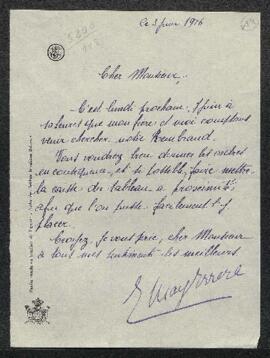 Ce 3 juin 1926
Cher Monsieur,
C'est lundi prochain, 7 juin à
que mon frère et moi comptons
venir chercher notre Rembrand.
Vous voudrez bien donner les ordres
en conséquence, et si possible, faire mettre
la caisse du tableau à proximité
afin que l'on puisse facilement l'y
placer.
Croyez, je vous prie, cher Monsieur
à tous mes sentiments les meilleurs.